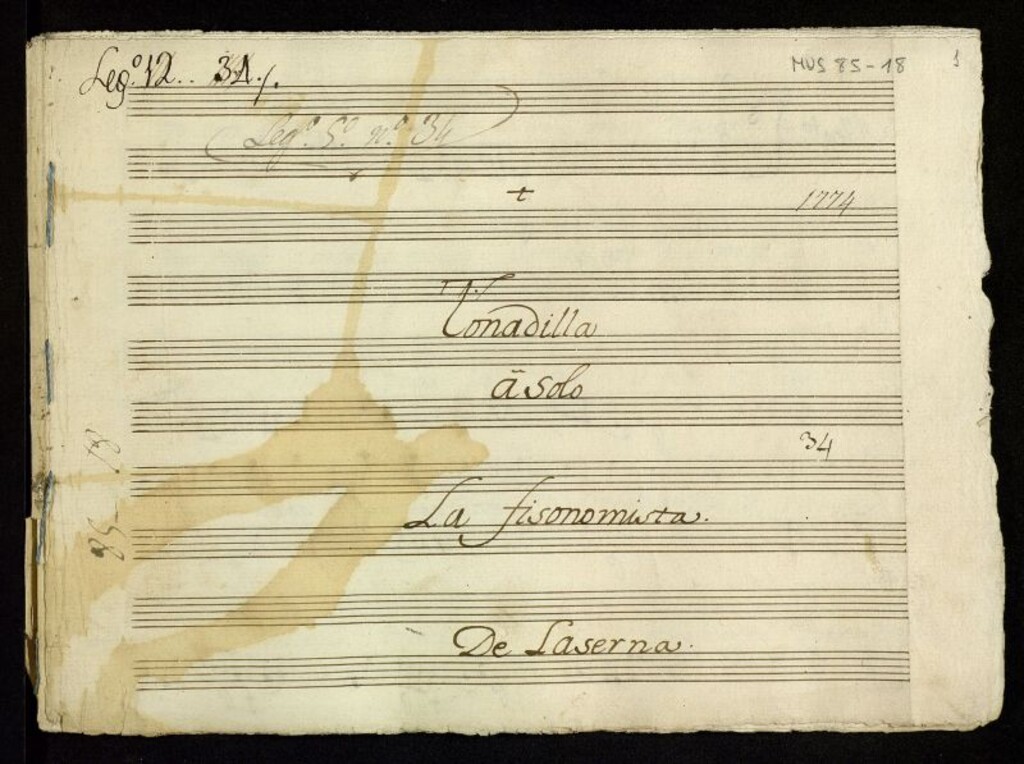 Leg.º 12.. 34./.
MUS 85-18
1
Leg.º 5.º n.º 34
+
1774
Tonadilla
â Solo
34
La fisonomista.
De Laserna.
85-18